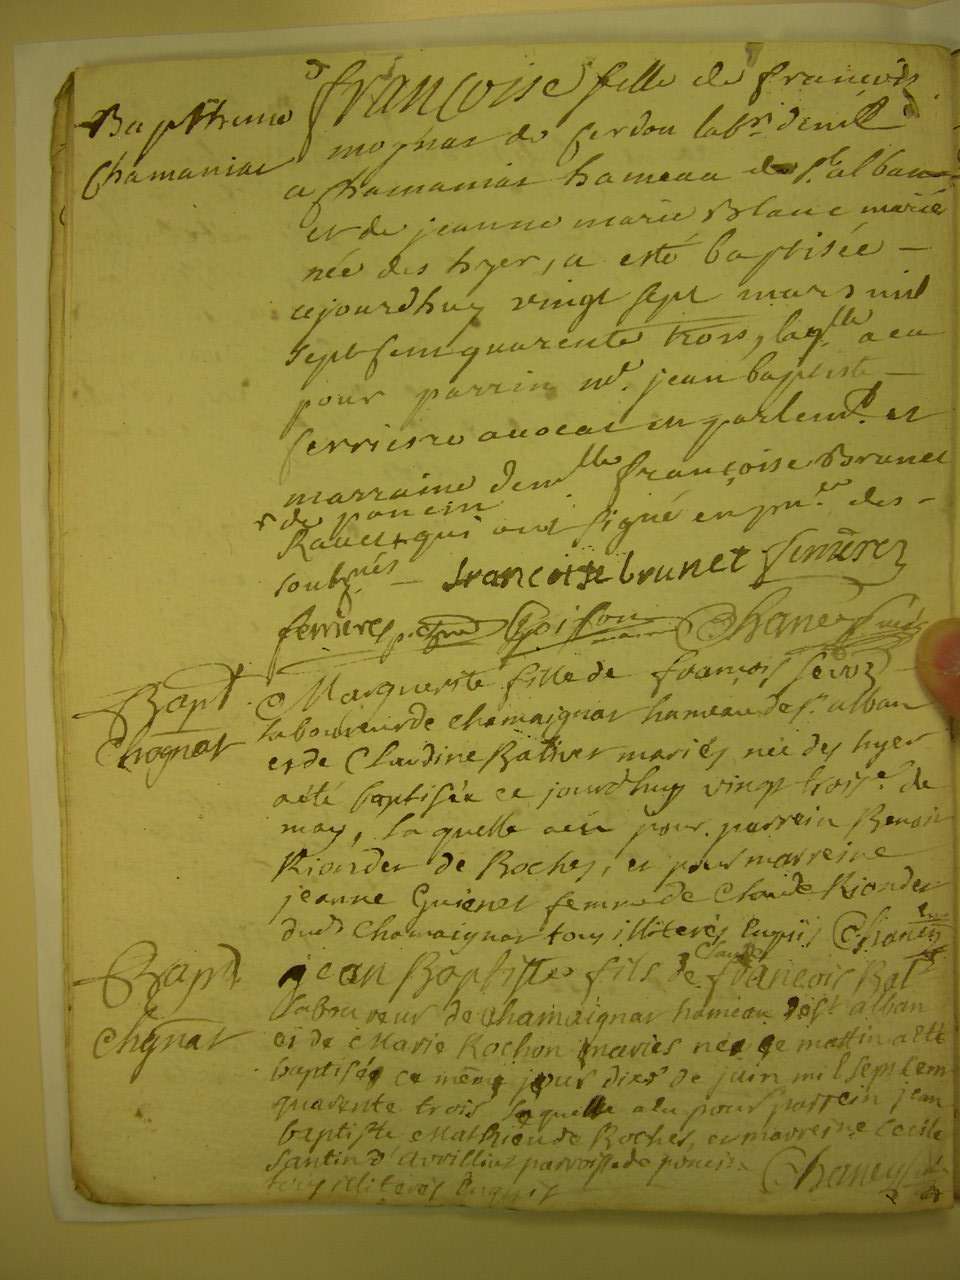 Baptheme
Chamaniat
françoise fille de françois
moynat de serdon labr. demt
a Chamaniat hameau de st alban
et de jeanne marie Blanc mariés
née des hyer, a esté baptisée –
cejourdhuy vingt sept mars mil
sept sent quarente trois, laqlle a eu
pour parrin mr. jean baptiste –
ferriere avocat en parlemt. et
marraine demlle françoise Brunet
r de poncin
qui ont signé en pnce des –
soubznés – francoise brunet ferrierez
ferrieres Chaney
Bapt
Chagnat
Marguerite fille de françois
laboureur de chamaignat hameau de st alban
et de Claudine mariés née des hyer
a été baptisée ce jourdhuy vingt trois e. de
may, laquelle a eu pour parrein Benoit
Riondet de Roches, et pour marreine
jeanne Guienet femme de Claude Riondet
dud Chamaignat tous illiterés enquis Chaney
Bapt
Chgnat
jean Baptiste fils de françois
Claude
laboureur de chamaignat hameau de st alban
et de Marie Rochon mariés née ce mattin a été
baptisée ce même jour de juin mil sept cent
quarente trois laquelle a eu pour parrein jean
baptiste Mathieu de Roches, et marreine Cecile
Santin d'avrillat parroisse de poncin
tous illiterés enquis Chaney